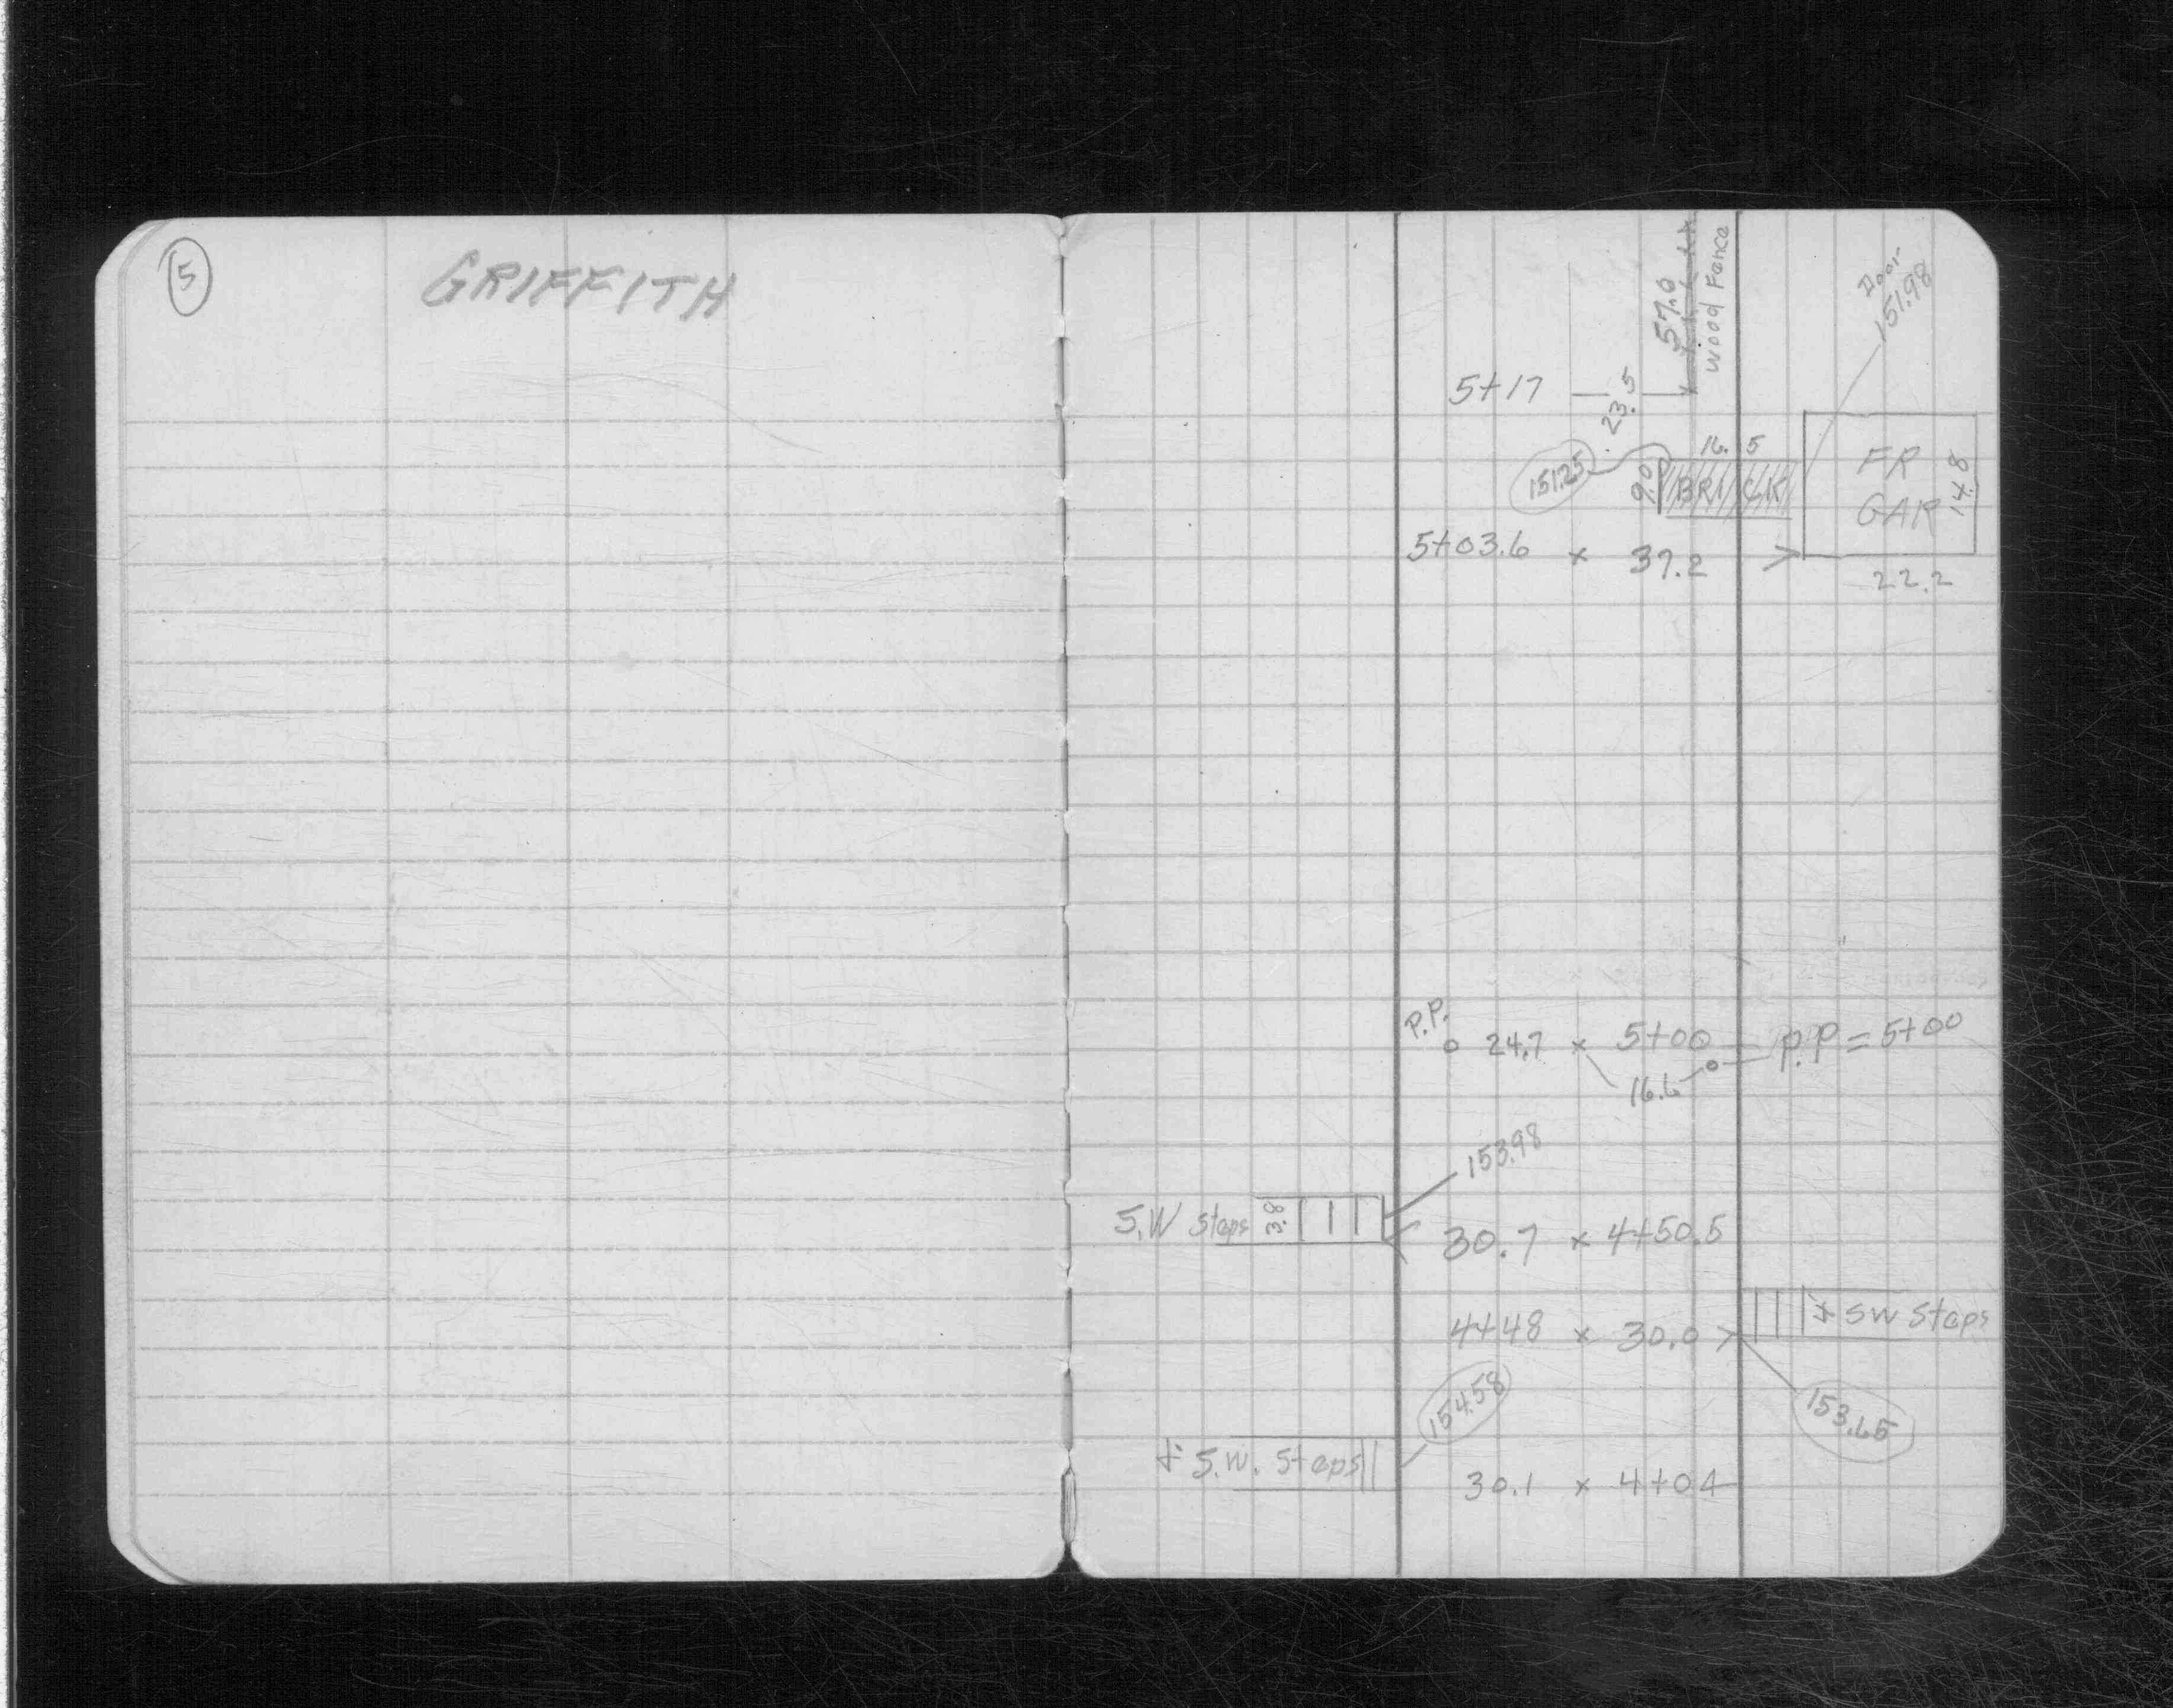 5
GRIFFITH
57.0
Wood Fence
Door
151.98
5+17
23.5
16.5
151.25
9.0
BRICK
FR
GAR
14.8
5+03.6 x 37.2
22.2
P.P.
24.7 x 5+00
P.P = 5+00
16.6
153.98
S.W Steps 3.8
30.7 x 4+50.5
4+48 x 30.0
SW Steps
154.58
153.65
S.W. Steps
30.1 x 4+04